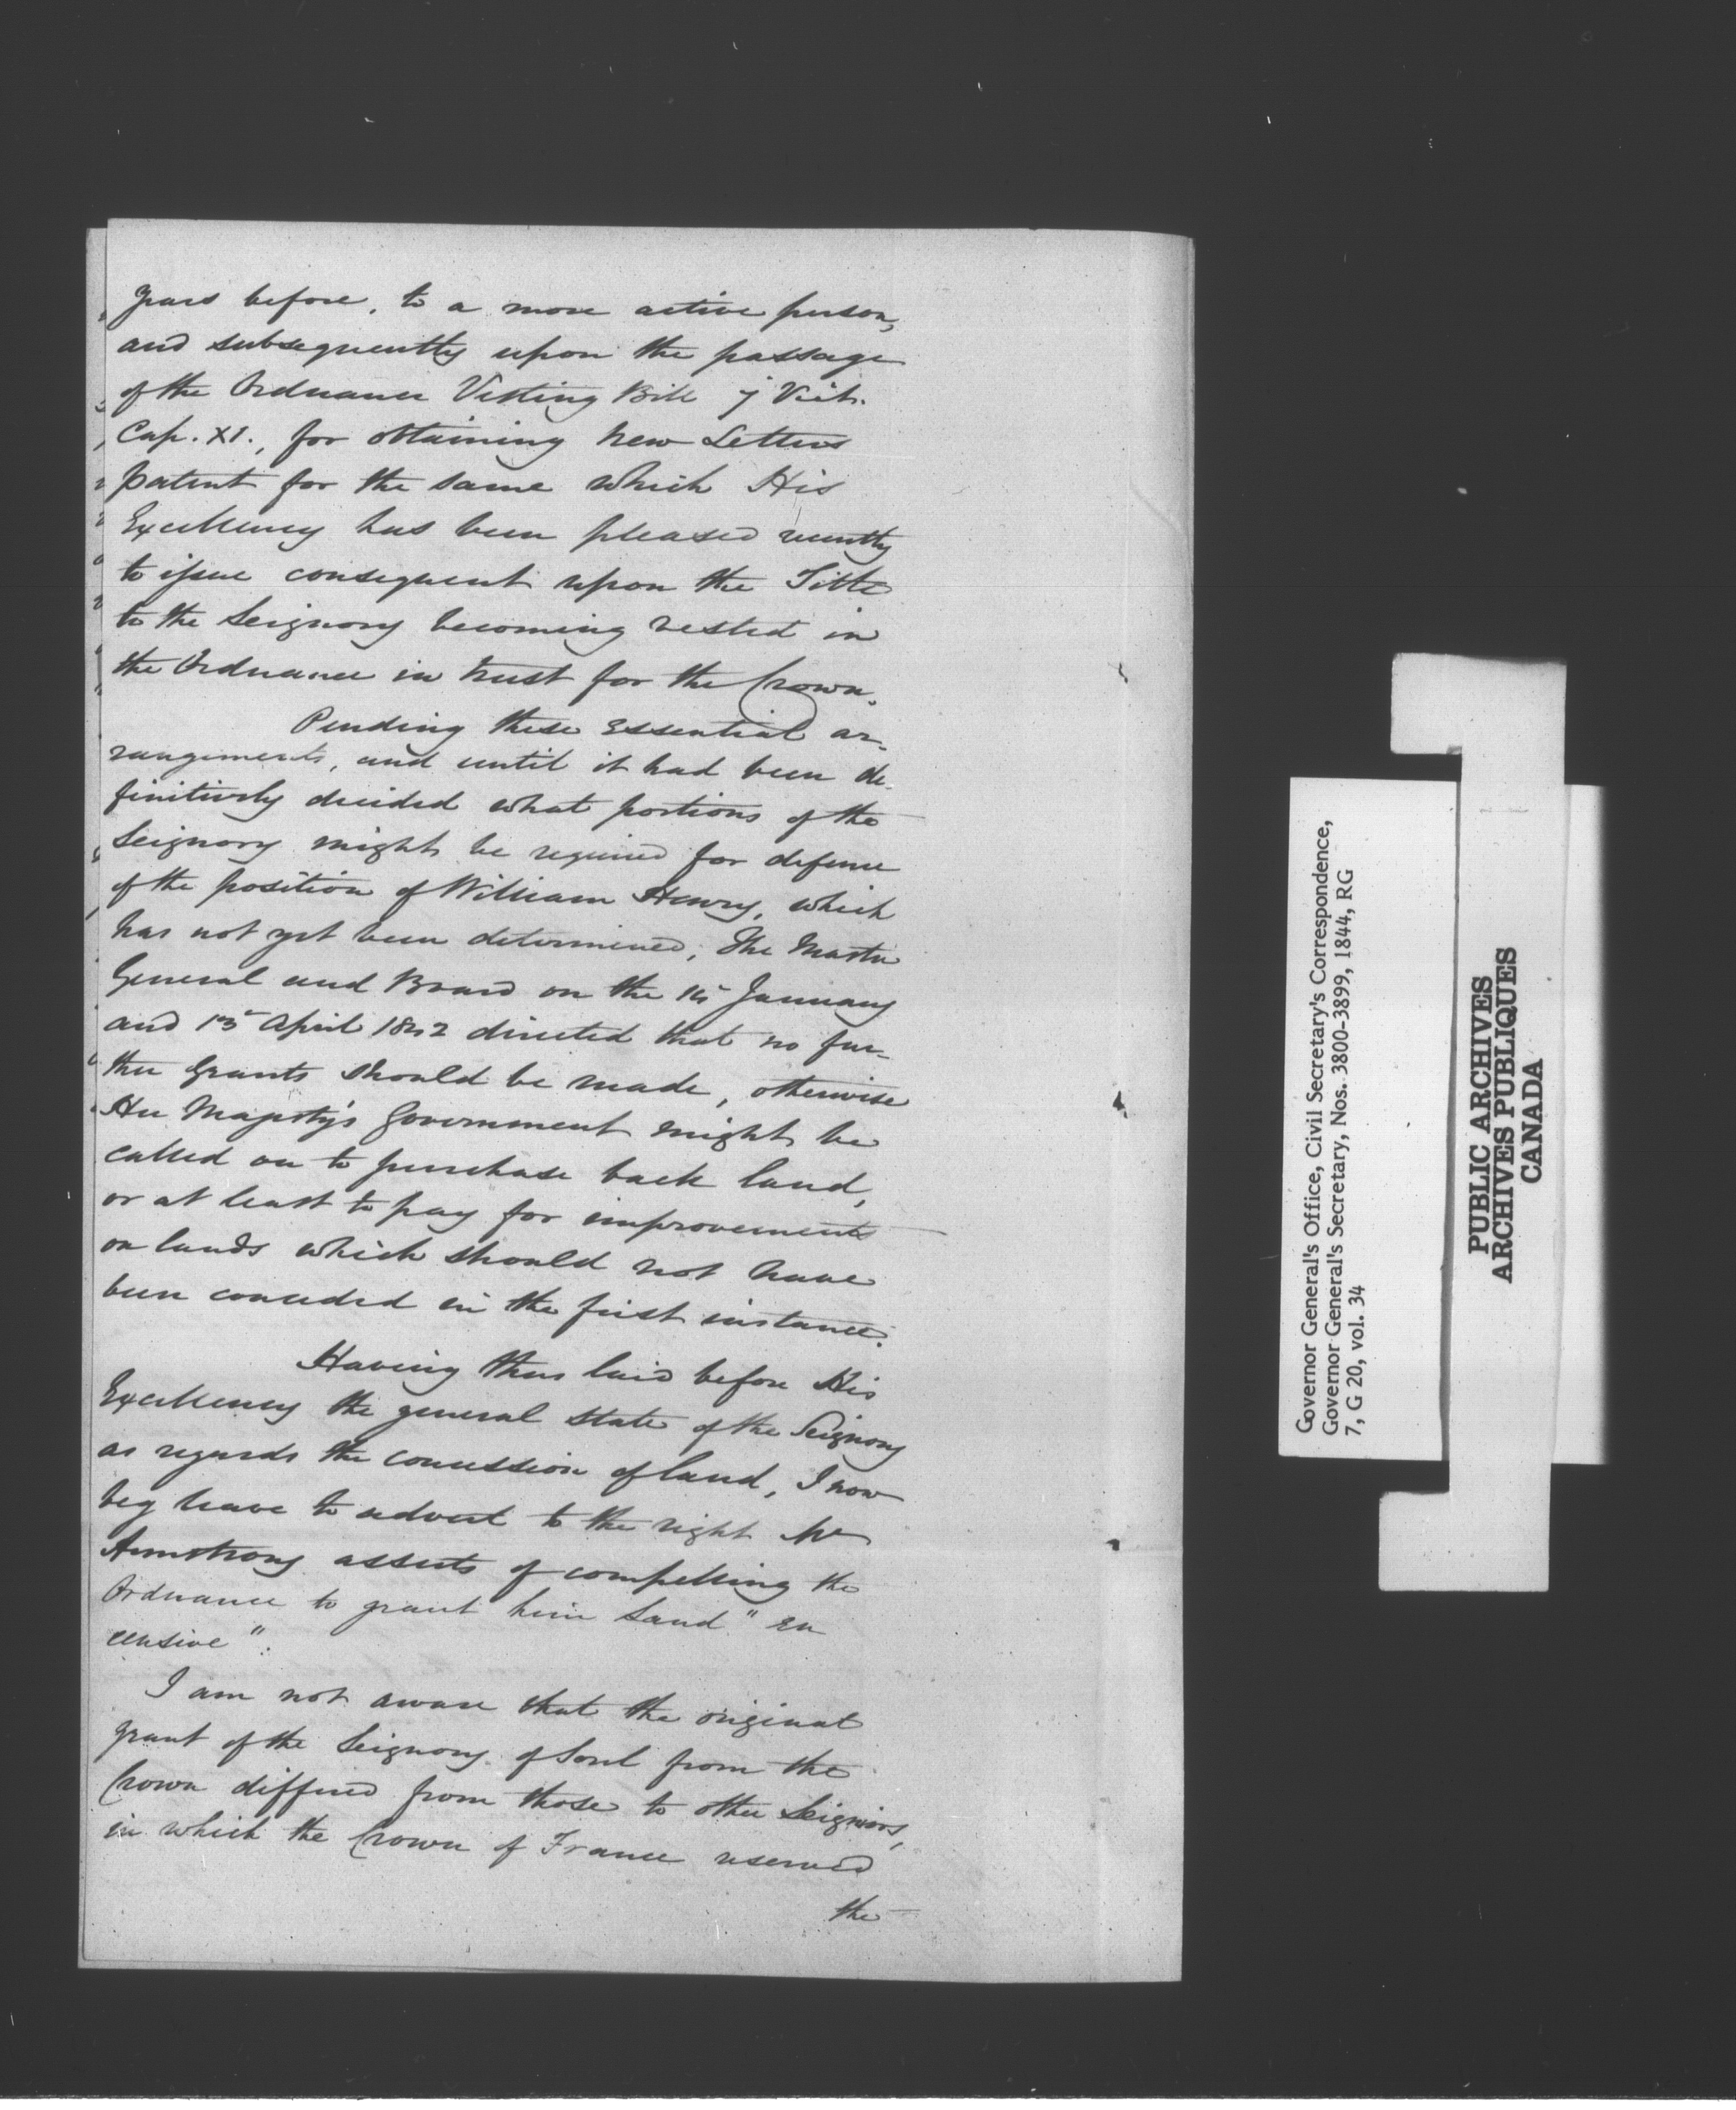 years before, to a more active person,
and subsequently upon the passage
of the Ordnance Vesting Bill 7 Vict.
Cap. XI., for obtaining new Letters
patent for the same which His
Excellency has been pleased recently
to issue consequent upon the Title
to the Seignory becoming vested in
the Ordnance in trust for the Crown.
Pending these essential ar-
rangements, and until it had been de-
finitively decided what portions of the
Seignory might be required for defence
of the position of William Henry, which
has not yet been determined, The Master
General and Board on the January
and 13 April 1842 directed that no fur-
ther grants should be made, otherwise
Her Majesty's Government might be
called on to purchase back land,
or at least to pay for improvements
on lands which should not have
been conceded in the first instance.
Having thus laid before His
Excellency the general state of the Seignory
as regards the concession of land, I now
beg leave to advert to the right Mr
Armstrong asserts of compelling the
Ordnance to grant him Land "en
censive".
I am not aware that the original
grant of the Seignory of Sorel from the
Crown differed from those to other Seigniors,
in which the Crown of France reserved
the
Governor General's Office, Civil Secretary's Correspondence,
Governor General's Secretary, Nos. 3800-3899, 1844, RG
7, G 20, vol. 34
PUBLIC ARCHIVES
ARCHIVES PUBLIQUES
CANADA